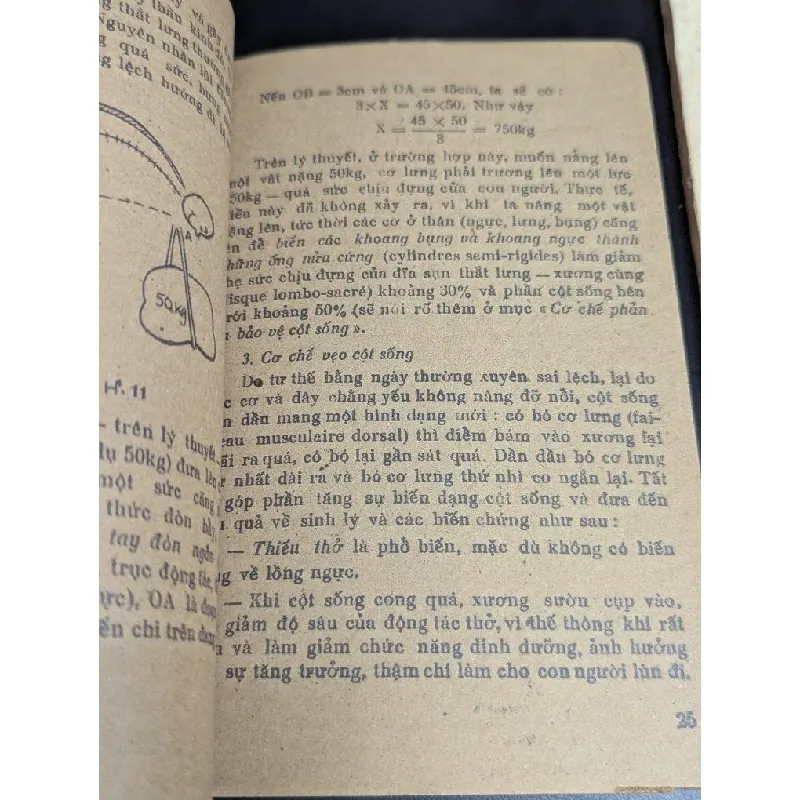 y và gãy
thần kinh
g thắt lưng thường
Nguyên nhân lỗi
quá sức, bưng
g lệch hướng
A
50kg
H. 11
- trên lý thuyết,
dụ 50kg) đưa lên
một sức căng
thức đòn bẩy
tay đòn ngắn
trục động
ực), OA là
ến chi trên
Nếu OB = 3cm và OA = 45cm, ta sẽ có :
3 × X = 45 × 50. Như vậy
45 × 50
X = = 750kg
3
Trên lý thuyết, ở trường hợp này, muốn nâng lên
một vật nặng 50kg, cơ lưng phải trương lên một lực
50kg — quá sức chịu đựng của con người. Thực tế,
iều này đã không xảy ra, vì khi ta nâng một vật
ặng lên, tức thời các cơ ở thân (ngực, lưng, bụng) căng
ên để biến các khoang bụng và khoang ngực thành
hững ống nửa cứng (cylindres semi-rigides) làm giảm
hẹ sức chịu đựng của đĩa sụn thắt lưng — xương cùng
disque lombo-sacré) khoảng 30% và phần cột sống bên
ưới khoảng 50% (sẽ nói rõ thêm ở mục « Cơ chế phản
bảo vệ cột sống ».
3. Cơ chế vẹo cột sống
Do tư thế bằng ngày thường xuyên sai lệch, lại do
c cơ và dây chằng yếu không nâng đỡ nổi, cột sống
n dần mang một hình dạng mới : có bó cơ lưng (fai-
eau musculaire dorsal) thì điểm bám vào xương lại
ãi ra quá, có bó lại gần sát quá. Dần dần bó cơ lưng
nhất dài ra và bó cơ lưng thứ nhì co ngắn lại. Tất
góp phần tăng sự biến dạng cột sống và đưa đến
quả về sinh lý và các biến chứng như sau :
— Thiếu thở là phổ biến, mặc dù không có biến
ng về lồng ngực.
— Khi cột sống cong quá, xương sườn cụp vào,
giảm độ sâu của động tác thở, vì thế thông khí rất
và làm giảm chức năng dinh dưỡng, ảnh hưởng
sự tăng trưởng, thậm chí làm cho con người lùn đi.
25